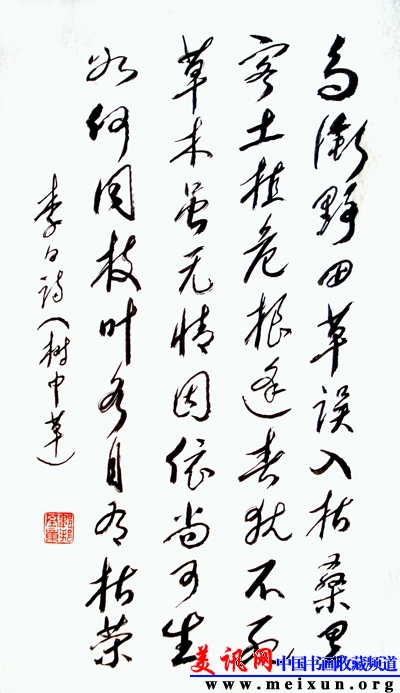 鸟衔野田草误入枯桑里
客土植危根逢春犹不死
草木虽无情因依尚可生
如何同枝叶各自有枯荣
李白诗（树中草）
美讯网中国书画收藏频道
www.meixun.org